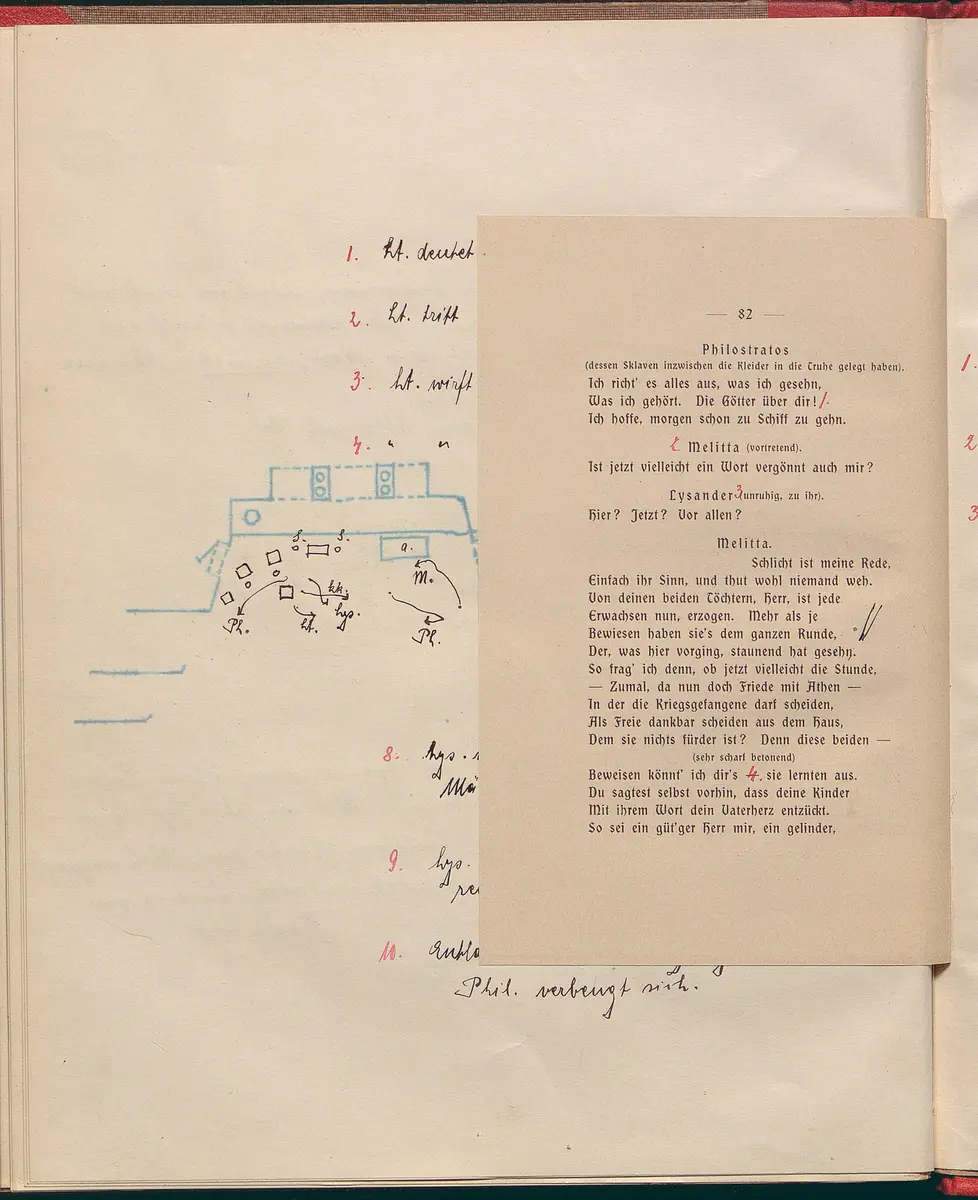 1. Ht. deutet
2. Ht. tritt
3. Ht. wirft
4. " "
S. S.
a.
M.
kk.
Lys.
Ph. Ht. Ph.
8. Lys.
9. Lys.
10.
Phil. verbeugt sich.
— 82 —
Philostratos
(dessen Sklaven inzwischen die Kleider in die Truhe gelegt haben).
Ich richt' es alles aus, was ich gesehn,
Was ich gehört. Die Götter über dir! 1.
Ich hoffe, morgen schon zu Schiff zu gehn.
2. Melitta (vortretend).
Ist jetzt vielleicht ein Wort vergönnt auch mir?
Lysander 3 (unruhig, zu ihr).
Hier? Jetzt? Vor allen?
Melitta.
Schlicht ist meine Rede,
Einfach ihr Sinn, und thut wohl niemand weh.
Von deinen beiden Töchtern, Herr, ist jede
Erwachsen nun, erzogen. Mehr als je
Bewiesen haben sie's dem ganzen Runde,
Der, was hier vorging, staunend hat gesehn.
So frag' ich denn, ob jetzt vielleicht die Stunde,
— Zumal, da nun doch Friede mit Athen —
In der die Kriegsgefangene darf scheiden,
Als Freie dankbar scheiden aus dem Haus,
Dem sie nichts fürder ist? Denn diese beiden —
(sehr scharf betonend)
Beweisen könnt' ich dir's 4. sie lernten aus.
Du sagtest selbst vorhin, dass deine Kinder
Mit ihrem Wort dein Vaterherz entzückt.
So sei ein güt'ger Herr mir, ein gelinder,
1.
2
3